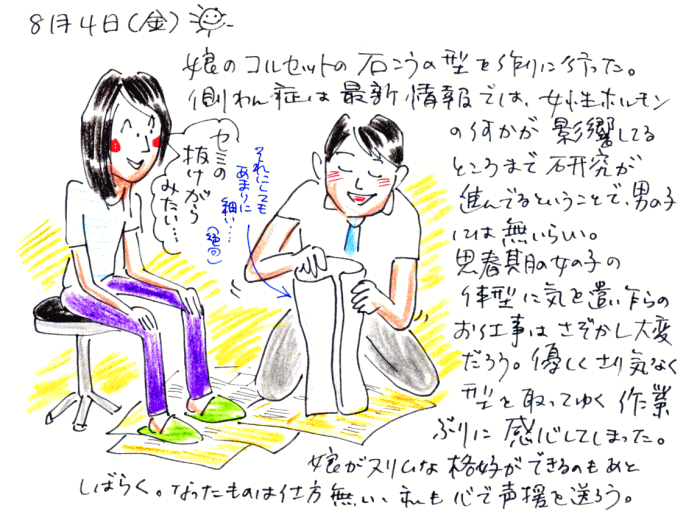 8月4日(金)
娘のコルセットの石こうの型を作りに行った。
側わん症は最新情報では、女性ホルモン
の何かが影響してる
ところまで研究が
進んでるということで、男の子
には無いらしい。
思春期の女の子の
体型に気を遣い乍らの
お仕事はさぞかし大変
だろう。優しくさり気なく
型を取ってゆく作業
ぶりに感心してしまった。
娘がスリムな格好ができるのもあと
しばらく。なったものは仕方無い、私も心で声援を送ろう。
セミの
抜けがら
みたい…
それにしても
あまりに
細い…